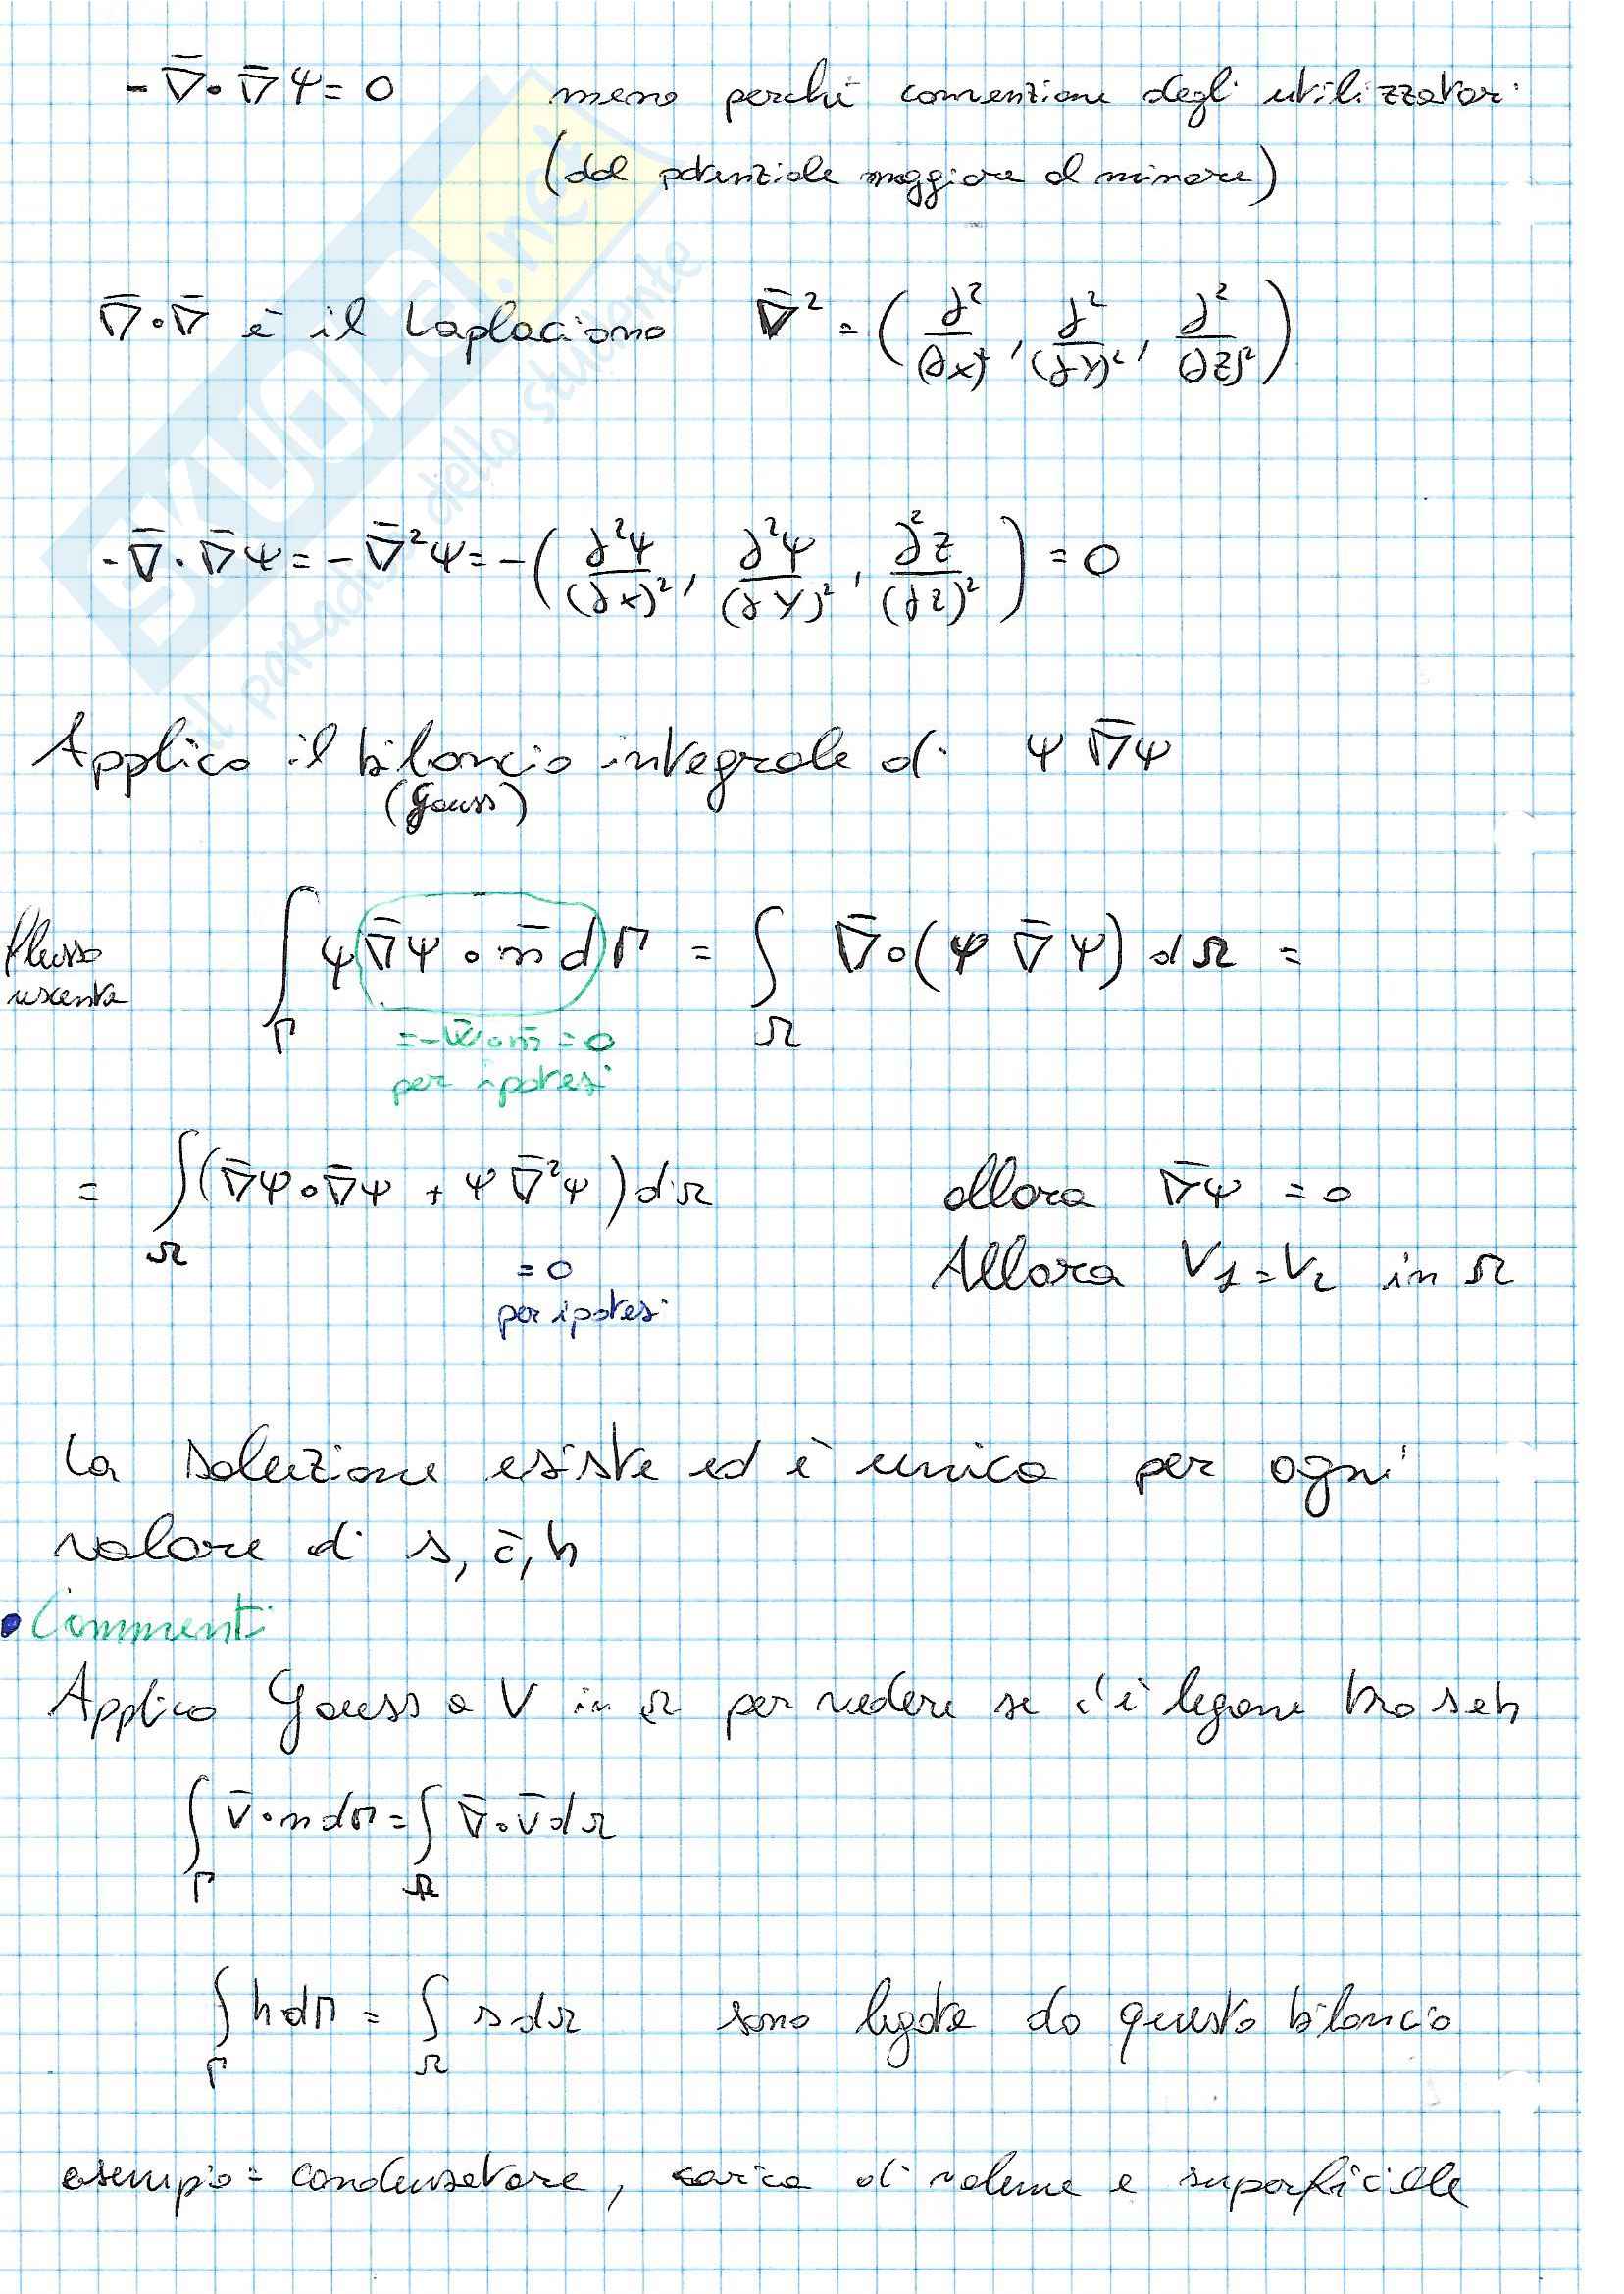 -∇̄·∇̄ψ=0 meno perché convenzione degli utilizzatori
(dal potenziale maggiore al minore)
∇̄·∇̄ è il Laplaciano ∇̄² = (∂²/(∂x)², ∂²/(∂y)², ∂²/(∂z)²)
-∇̄·∇̄ψ=-∇̄²ψ=-(∂²ψ/(∂x)², ∂²ψ/(∂y)², ∂²z/(∂z)²) = 0
Applico il bilancio integrale di ψ∇̄ψ
(Gauss)
flusso uscente ∫_Γ ψ∇̄ψ·n̄dΓ = ∫_Ω ∇̄·(ψ∇̄ψ)dΩ =
=-w̄·n̄=0
per ipotesi
= ∫_Ω (∇̄ψ·∇̄ψ + ψ∇̄²ψ)dΩ allora ∇̄ψ = 0
=0 Allora V₁=V₂ in Ω
per ipotesi
La soluzione esiste ed è unica per ogni
valore di s, c̄, h
• Commenti
Applico Gauss a V in Ω per vedere se c'è legame tra s e h
∫_Γ v̄·n dΓ = ∫_Ω ∇̄·v̄dΩ
∫_Γ h dΓ = ∫_Ω s dΩ sono legate da questo bilancio
esempio= condensatore, carica di volume e superficiale
SKUOLA.net
il paradiso dello studente